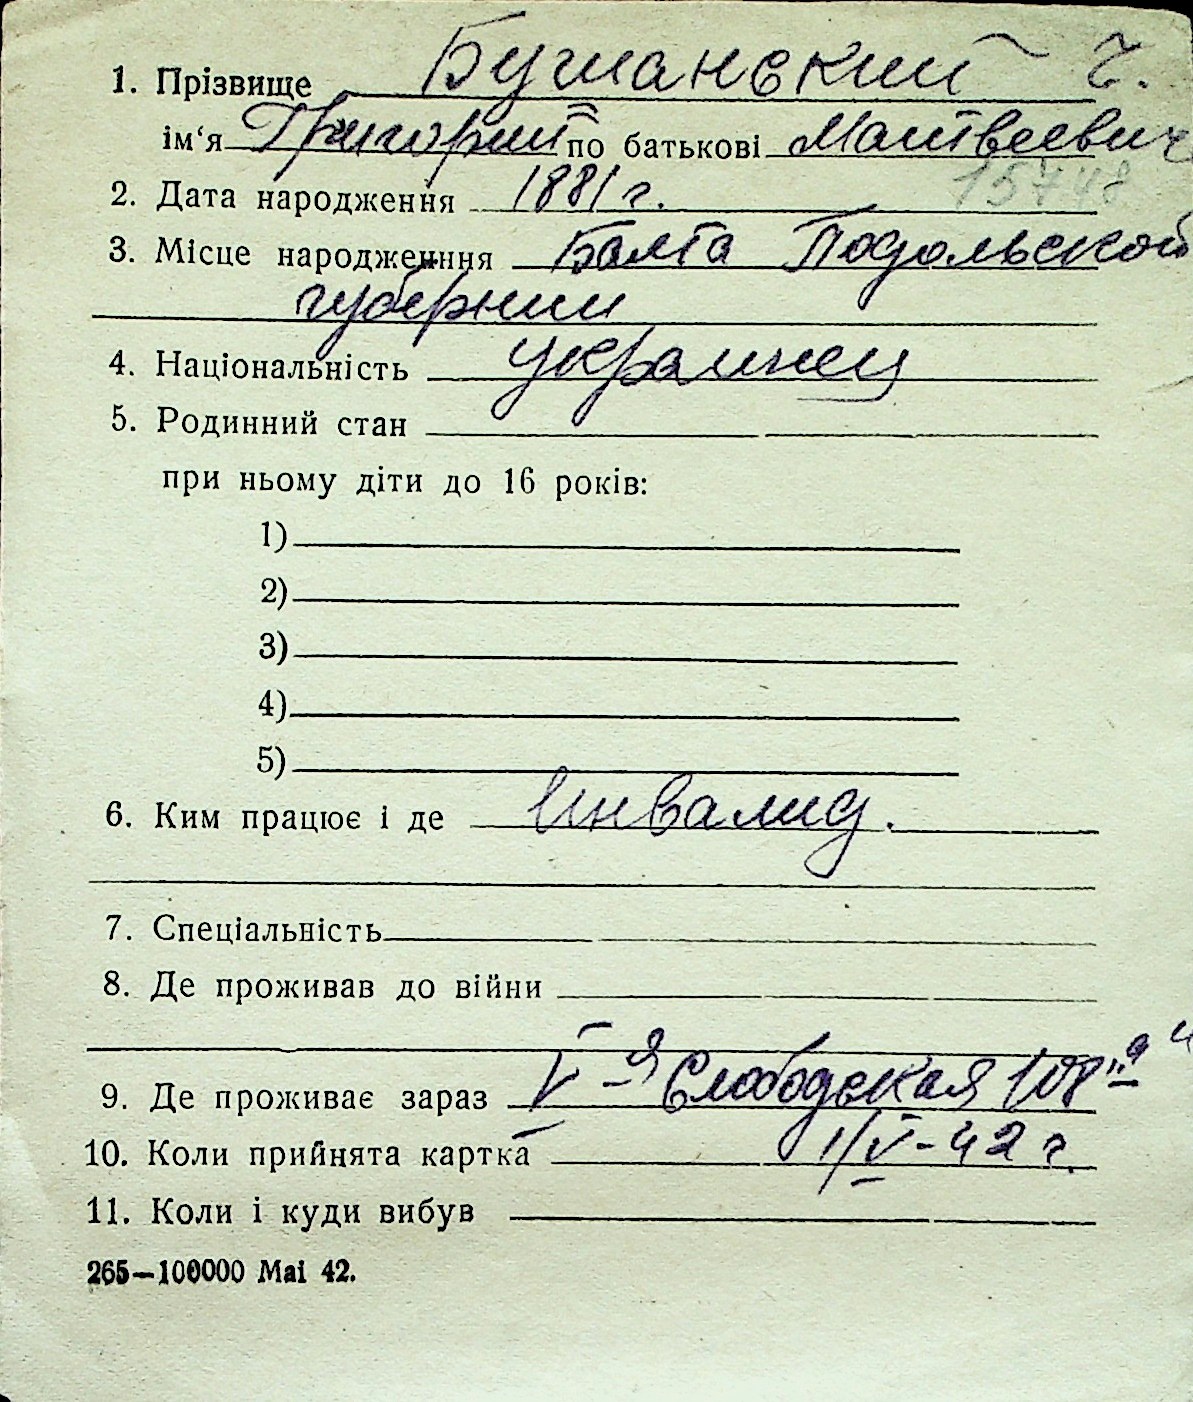 1. Прізвище Бушанский Г.
ім‘я Григорий по батькові Матвеевич
15748
2. Дата народження 1881 г.
3. Місце народженння Балта Подольской
губернии
4. Національність украинец
5. Родинний стан
при ньому діти до 16 років:
1)
2)
3)
4)
5)
6. Ким працює і де Инвалид.
7. Спеціальність
8. Де проживав до війни
9. Де проживає зараз V-я Слободская 108
10. Коли прийнята картка 1/V-42 г.
11. Коли і куди вибув
265—100000 Mai 42.